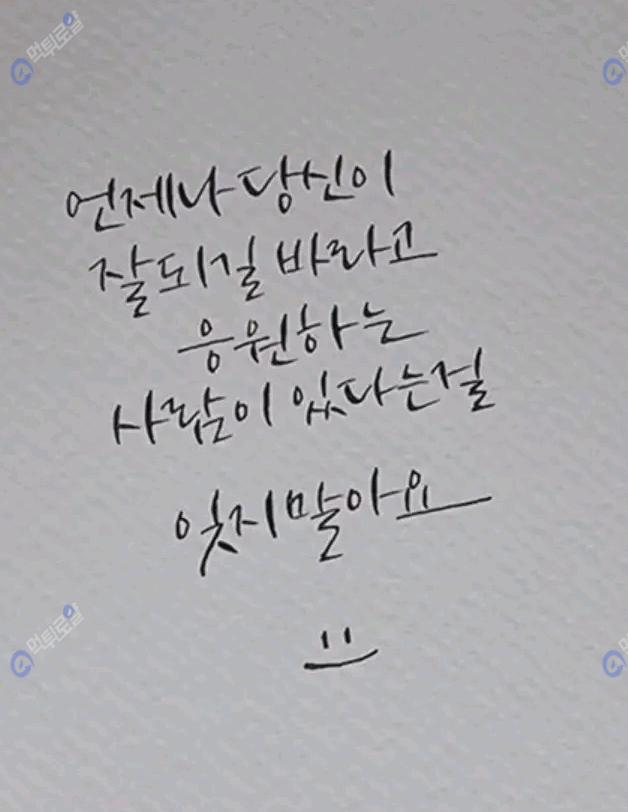 먹튀로얄
언제나 당신이
잘되길 바라고
응원하는
사람이 있다는걸
잊지말아요
먹튀로얄